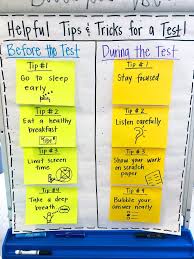 Helpful Tips & Tricks for a Test!
Before the Test
During the Test
Tip #1
Go to sleep
early
Tip #2
Eat a healthy
breakfast
Tip #3
Limit screen
time.
Tip #4
Take a deep
breath
Tip #1
Stay focused
Tip #2
Listen carefully
Tip #3
Show your work
on scratch
paper
Tip #4
Bubble your
answer neatly